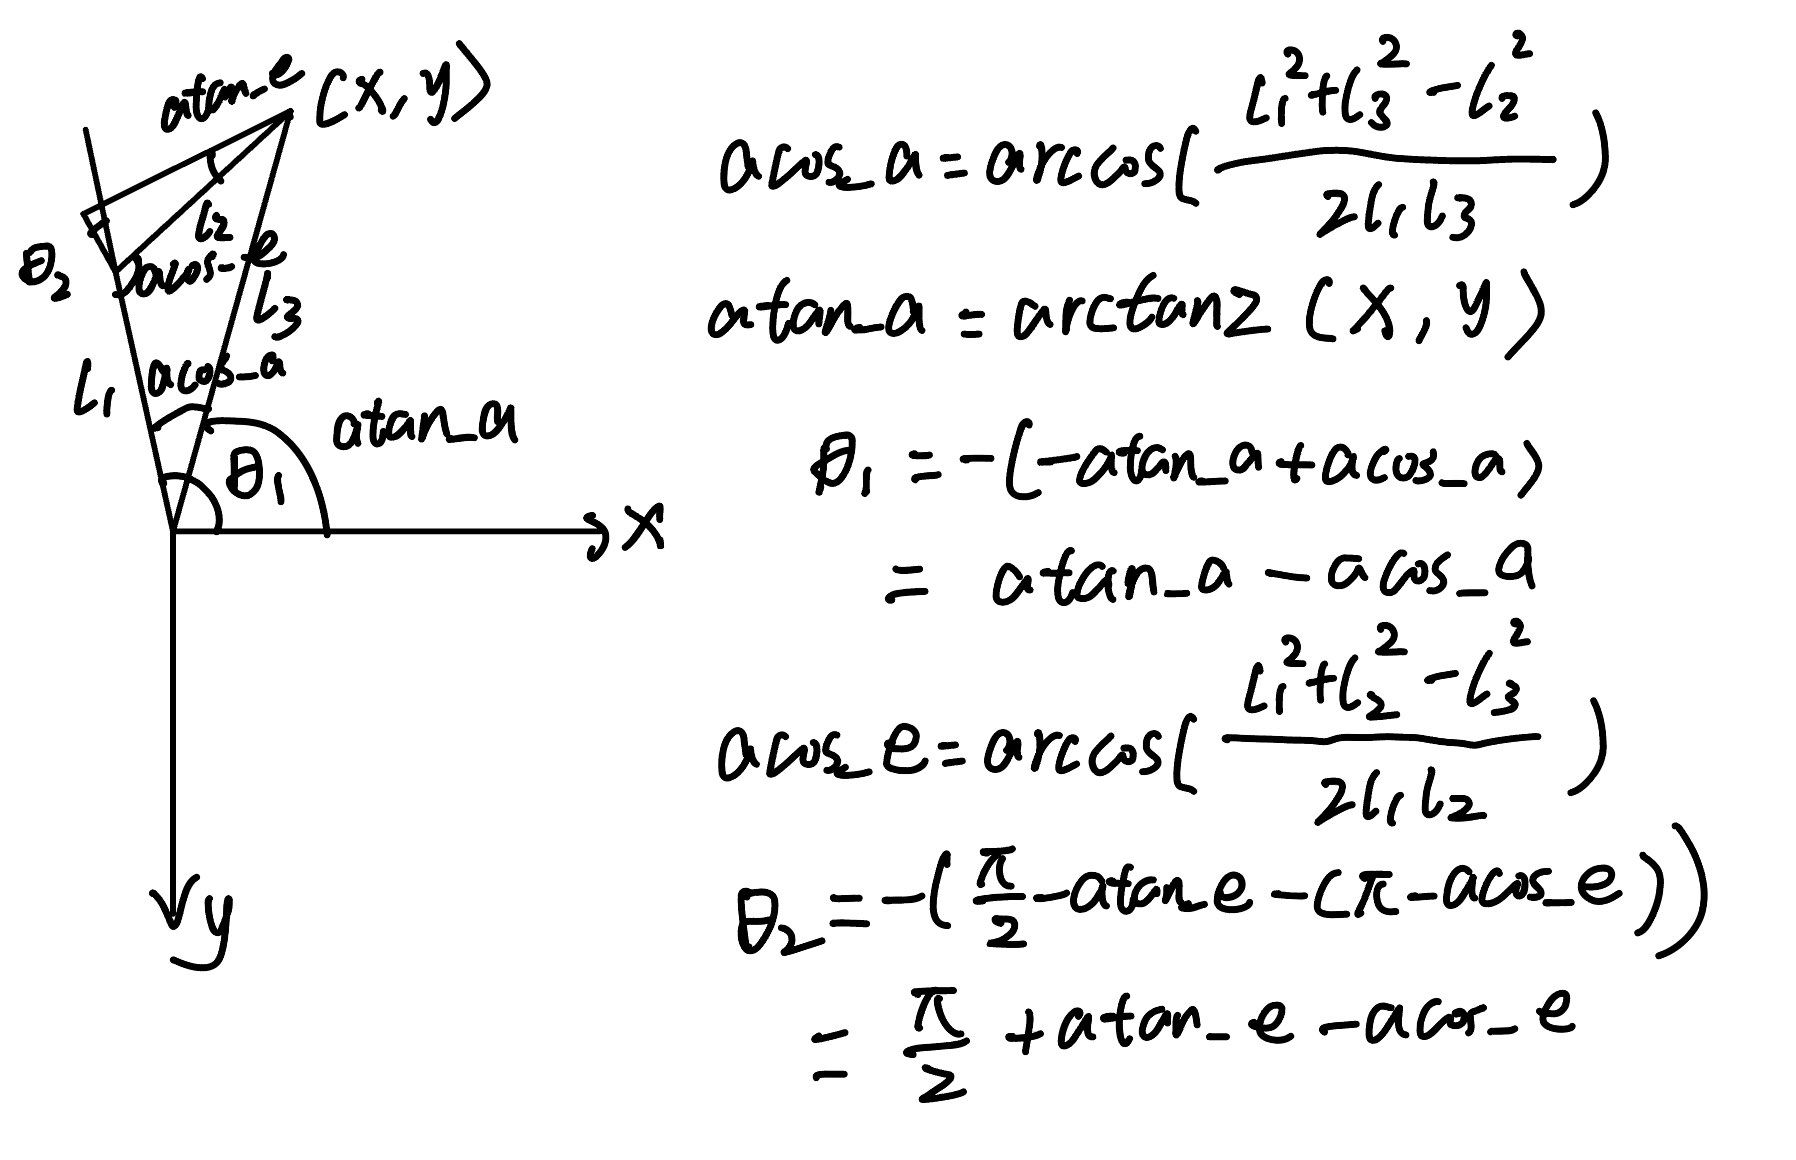 atan_e (x, y)
l₂
θ₂
acos_e
l₃
l₁
acos_a
atan_a
θ₁
x
y
acos_a = arccos( (l₁² + l₃² - l₂²) / (2l₁l₃) )
atan_a = arctan2 (x, y)
θ₁ = -(-atan_a + acos_a)
= atan_a - acos_a
acos_e = arccos( (l₁² + l₂² - l₃²) / (2l₁l₂) )
θ₂ = -(π/2 - atan_e - (π - acos_e))
= π/2 + atan_e - acos_e